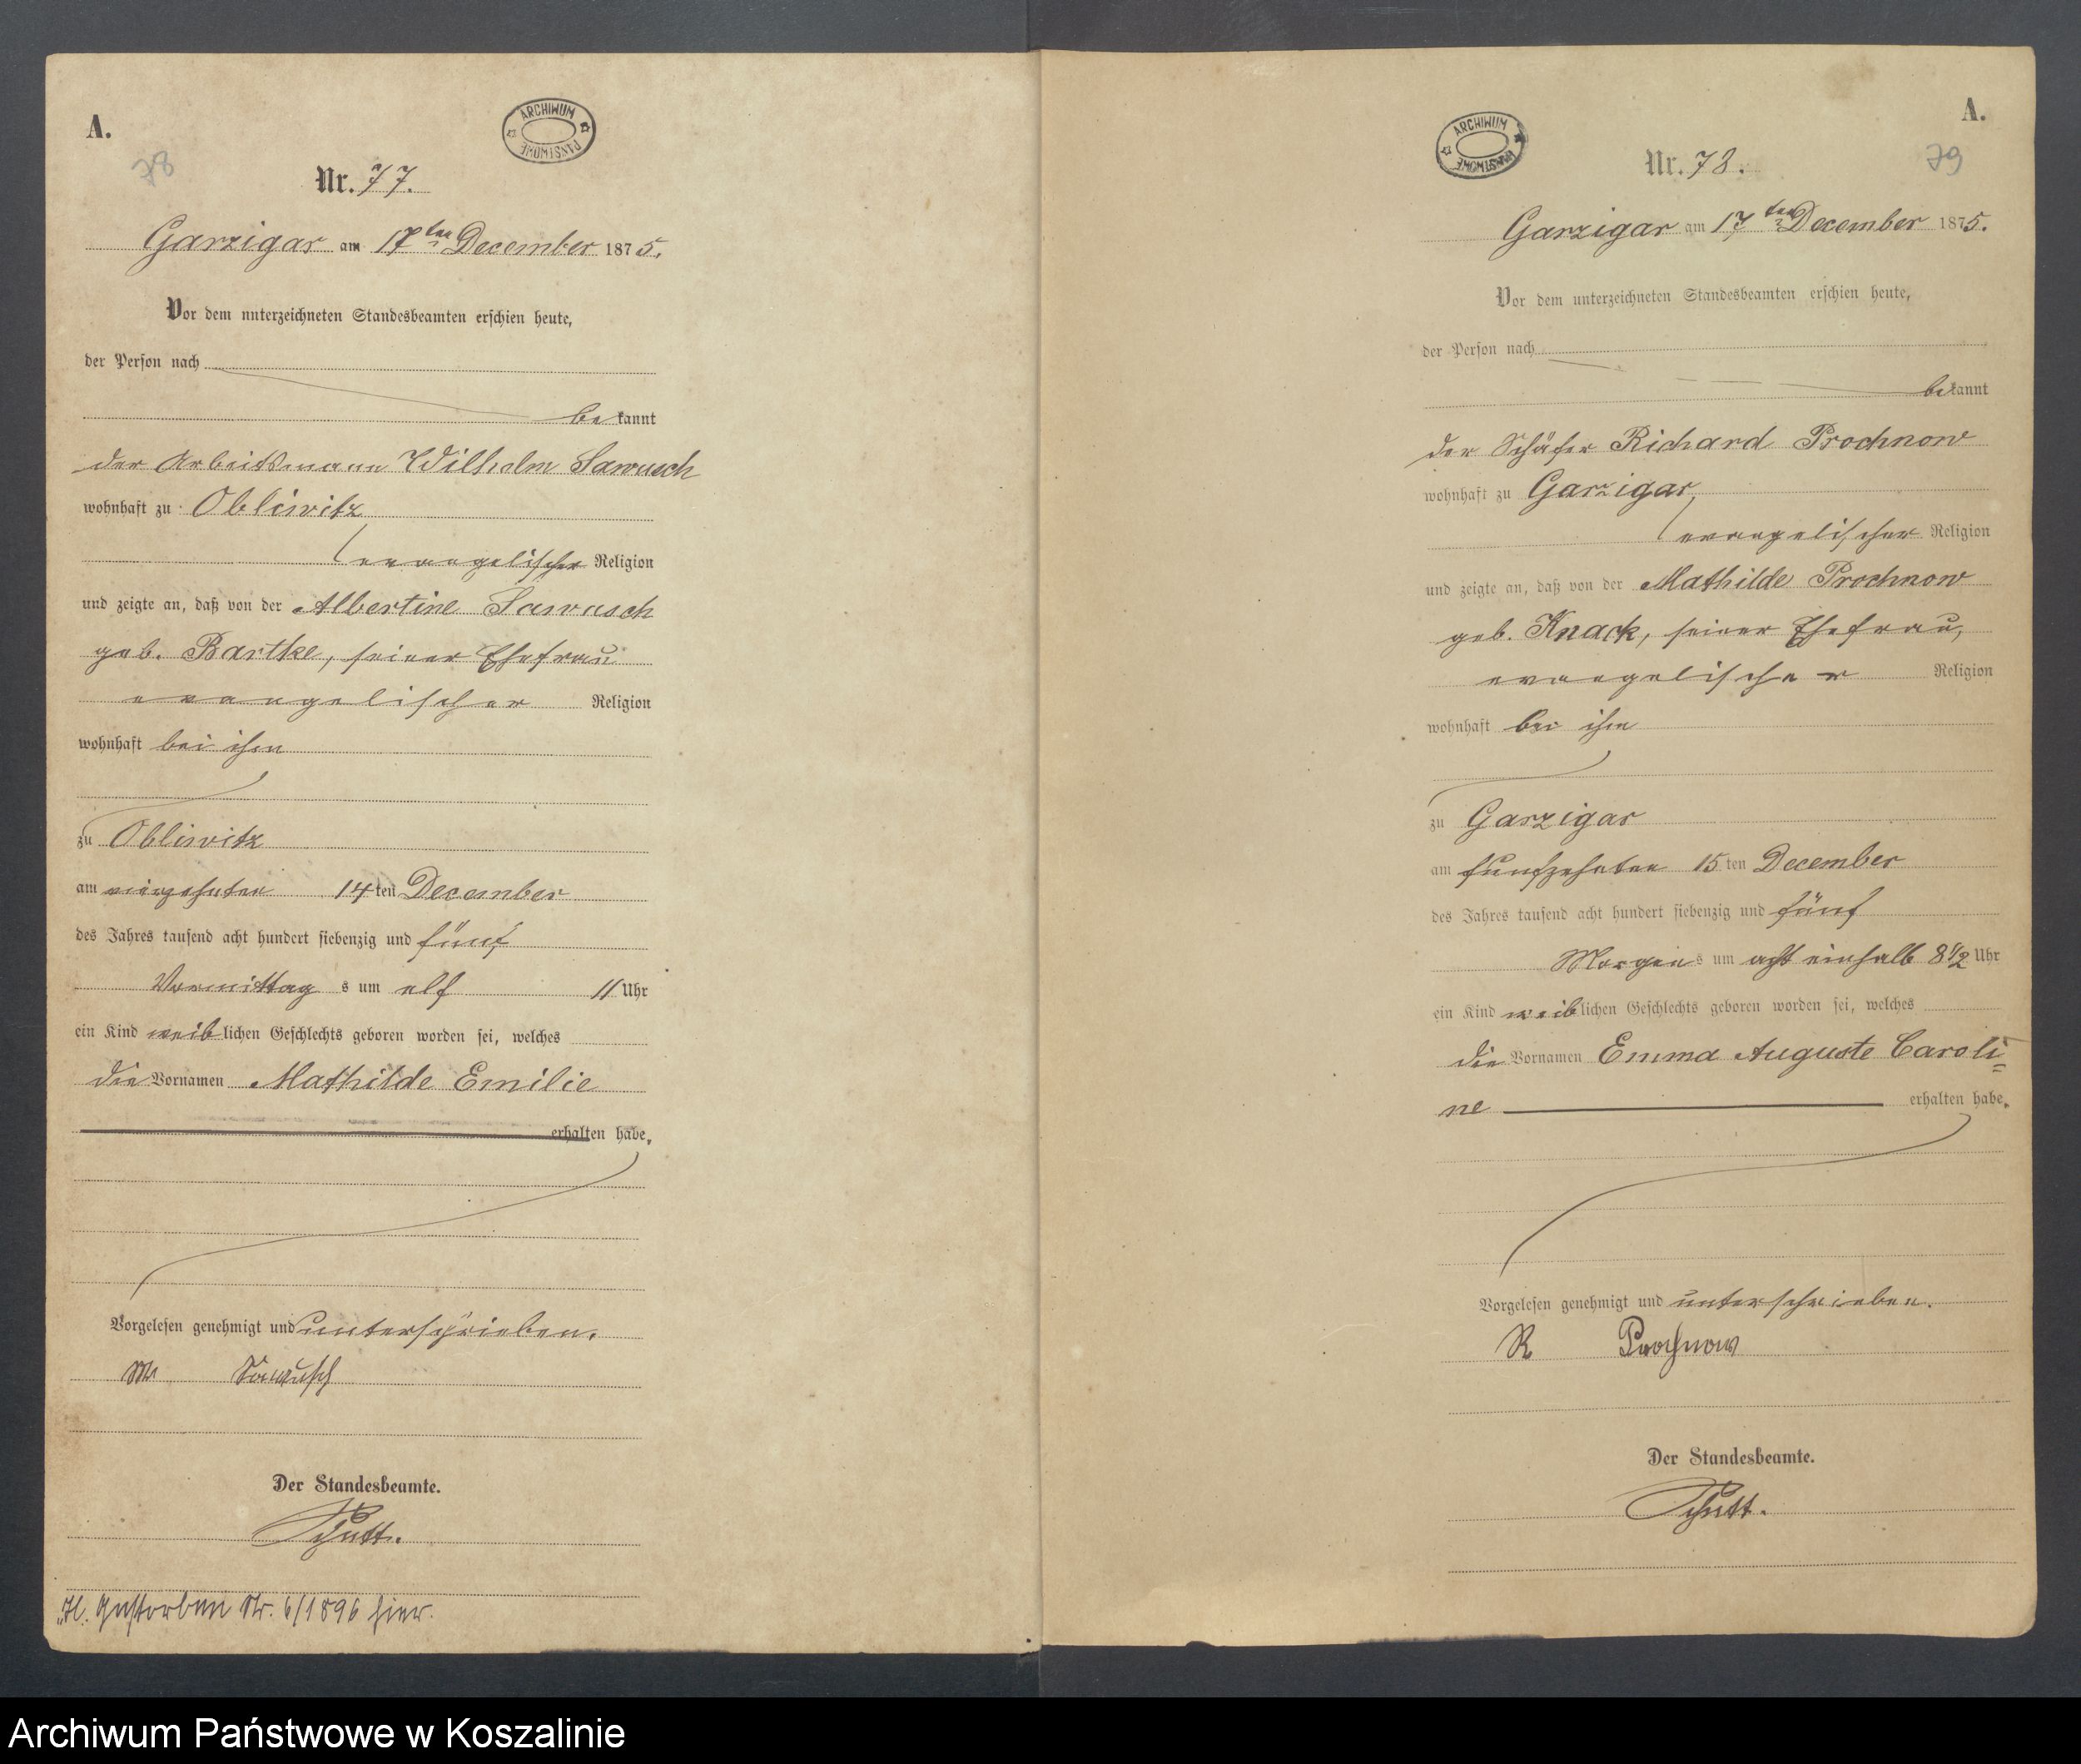 A.
78
ARCHIWUM PANSTWOWE
Nr. 77.
Garzigar am 17ten December 1875.
Vor dem unterzeichneten Standesbeamten erschien heute,
der Person nach
bekannt
der Arbeitsmann Wilhelm Sawusch
wohnhaft zu Obliwitz
evangelischer Religion
und zeigte an, daß von der Albertine Sawusch
geb. Bartke, seiner Ehefrau
evangelischer Religion
wohnhaft bei ihm
zu Obliwitz
am vierzehnten 14ten December
des Jahres tausend acht hundert siebenzig und fünf
Vormittags um elf 11 Uhr
ein Kind weiblichen Geschlechts geboren worden sei, welches
die Vornamen Mathilde Emilie
erhalten habe.
Vorgelesen genehmigt und unterschrieben.
Sawusch
Der Standesbeamte.
Schutt.
Gestorben Nr. 6/1896 hier.
A.
79
ARCHIWUM PANSTWOWE
Nr. 78.
Garzigar am 17ten December 1875.
Vor dem unterzeichneten Standesbeamten erschien heute,
der Person nach
bekannt
der Schäfer Richard Prochnow
wohnhaft zu Garzigar
evangelischer Religion
und zeigte an, daß von der Mathilde Prochnow
geb. Knack, seiner Ehefrau,
evangelischer Religion
wohnhaft bei ihm
zu Garzigar
am funfzehnten 15ten December
des Jahres tausend acht hundert siebenzig und fünf
Morgens um acht einhalb 8 1/2 Uhr
ein Kind weiblichen Geschlechts geboren worden sei, welches
die Vornamen Emma Auguste Caroli=
ne erhalten habe.
Vorgelesen genehmigt und unterschrieben.
R Prochnow
Der Standesbeamte.
Schutt.
Archiwum Państwowe w Koszalinie